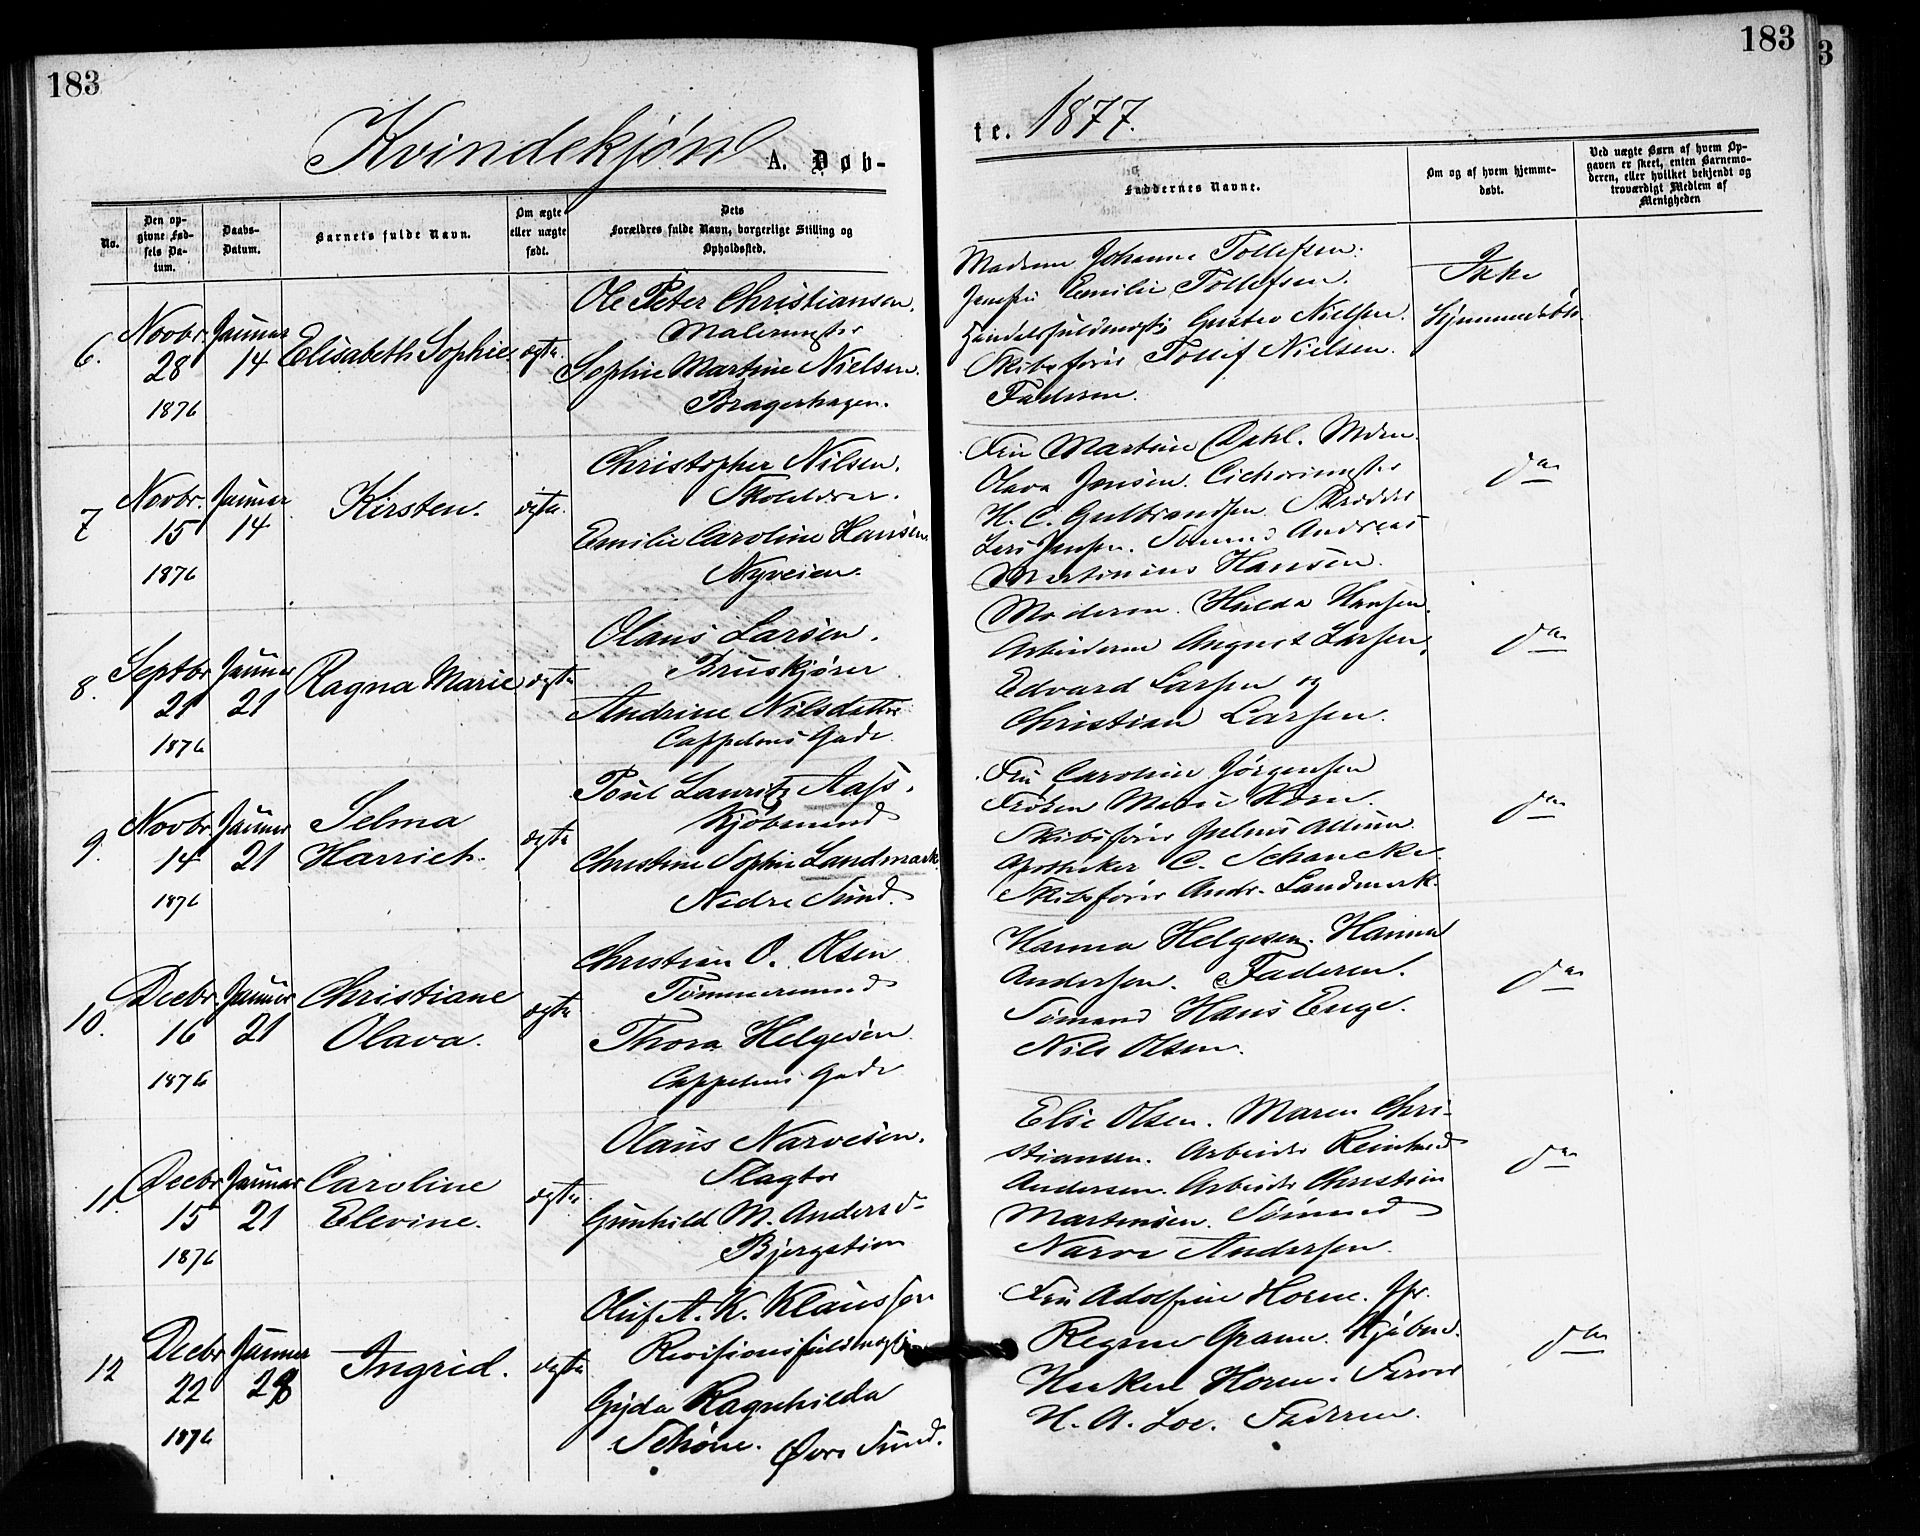 183
183
3
Kvindekjøn A. Døb-
te. 1877.
No.
Den op-
givne Fød-
sels Da-
tum.
Daabs-
Datum.
Barnets fulde Navn.
Om ægte
eller uægte
født.
Dets
Forældres fulde Navn, borgerlige Stilling og
Opholdssted.
Faddernes Navne.
Om og af hvem hjemme-
døbt.
Ved uægte Børn af hvem Op-
gaven er skeet, enten Barnemo-
deren, eller hvilket bekjendt og
troværdigt Medlem af
Menigheden
6.
Novbr.
28
1876
Januar
14
Elisabeth Sophie.
ægte.
Ole Peter Christiansen.
Malermester
Sophie Martine Nielsen.
Bragerhagen.
Madame Johanne Tollefsen.
Jomfru Emilie Tollefsen.
Handelsfuldmægtig Gustav Nielsen.
Skibsfører Tollef Nielsen.
Faderen.
Ikke
Hjemmedøbt.
7
Novbr.
15
1876
Januar
14
Kirsten.
ægte.
Christopher Nilsen.
Skolelærer.
Emilie Caroline Hansen.
Nyveien.
Fru Martine Dahl. Moren.
Olava Jensen. Cichorimester
H. C. Gulbrandsen. Skrædder
Lars Jensen. Sømand Andreas
Martinius Hansen.
do
8.
Septbr
21
1876
Januar
21
Ragna Marie
ægte
Olaus Larsen.
Bruskjører
Andrine Nilsdatter
Cappelens Gade.
Moderen. Hulda Hansen.
Arbeiderne August Larsen,
Edvard Larsen og
Christian Larsen.
do
9.
Novbr.
14
1876
Januar
21
Selma
Harriet.
ægte
Poul Lauritz Aass.
Kjøbmand
Christine Sophie Landmark.
Nedre Sund.
Fru Caroline Jörgensen
Frøken Marie Horn.
Skibsfører Julius Allum.
Apotheker C. Schancke.
Skibsfører Andr. Landmark.
do
10.
Decbr.
16
1876
Januar
21
Christiane
Olava.
ægte
Christian O. Olsen
Tømmermand
Thora Helgesen.
Cappelens Gade
Hanna Helgesen. Hanna
Andersen. Faderen.
Sømand Hans Enge.
Nils Olsen.
do
11.
Decbr
15
1876
Januar
21
Caroline
Elevine.
ægte.
Olaus Narvesen.
Slagter
Gunhild M. Andersd.
Bjergstien
Else Olsen. Maren Chri-
stiansen. Arbeider Reinhard
Andersen. Arbeider Christian
Martinsen. Sømand
Narve Andersen.
do
12
Decbr
22
1876
Januar
28
Ingrid.
ægte
Oluf A. K. Klaussen
Revisionsfuldmægtig
Gyda Ragnhilda
Schøne. Øvre Sund.
Fru Adolfine Horne. Jfr.
Regine Gram. Kjøbmd.
Haaken Horne. Farver
H. A. Loe. Faderen.
do